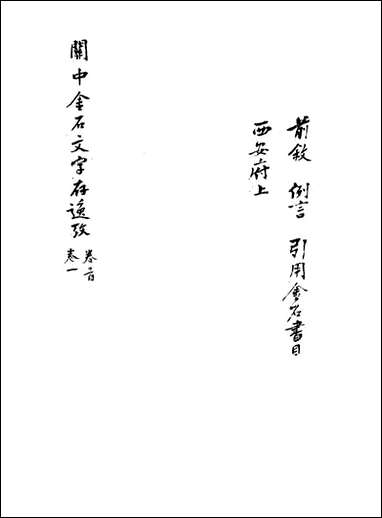 前敘 例言 引用金石書目
西安府上
關中金石文字存逸攷
卷首
卷一